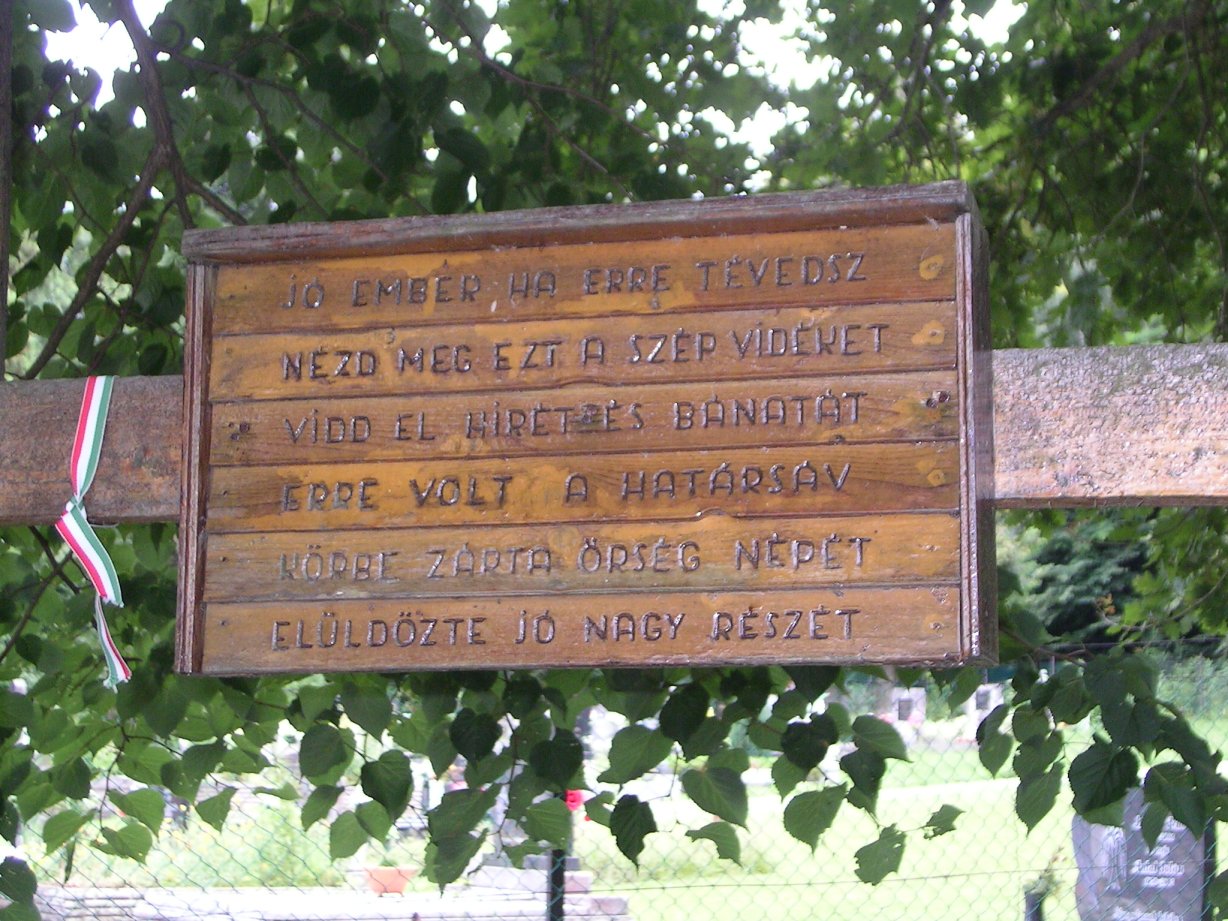 JÓ EMBÉR HA ERRE TÉVEDSZ
NÉZD MEG EZT A SZÉP VIDÉKET
VIDD EL HIRÉT ÉS BÁNATÁT
ERRE VOLT A HATÁRSÁV
KÖRBE ZÁRTA ŐRSÉG NÉPÉT
ELÜLDÖZTE JÓ NAGY RÉSZÉT